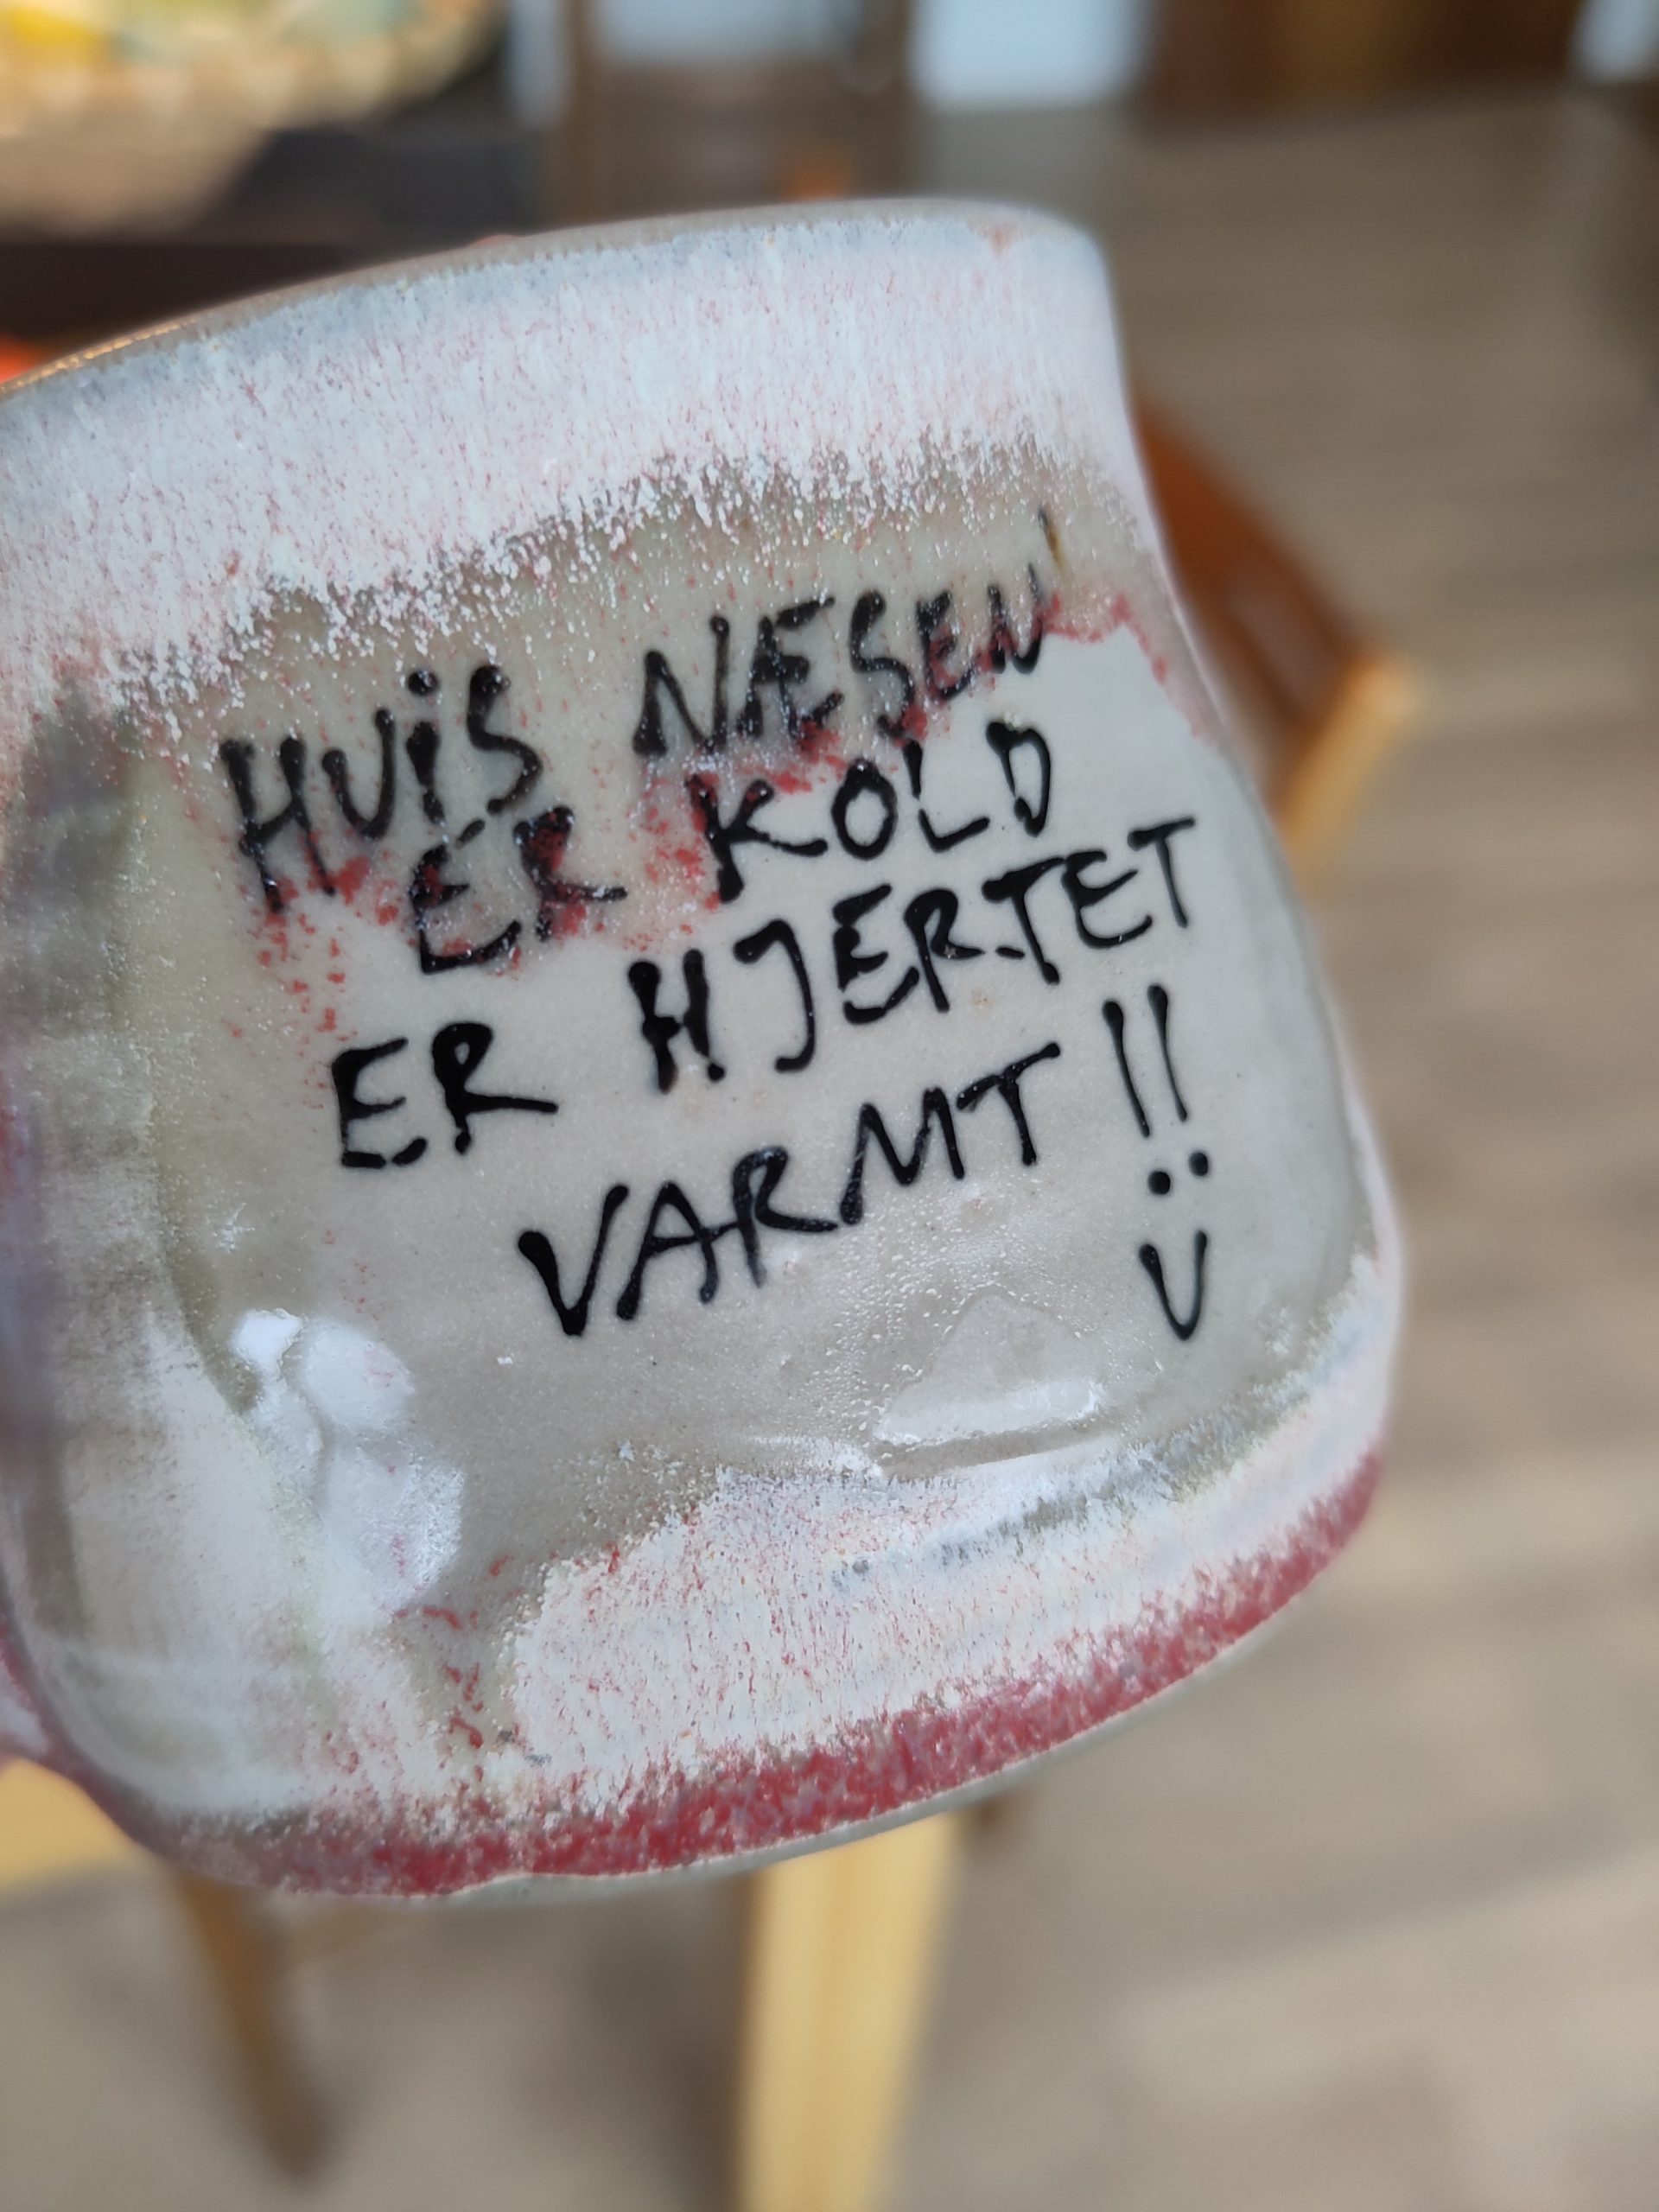 HVIS NÆSEN
ER KOLD
ER HJERTET
VARMT!!